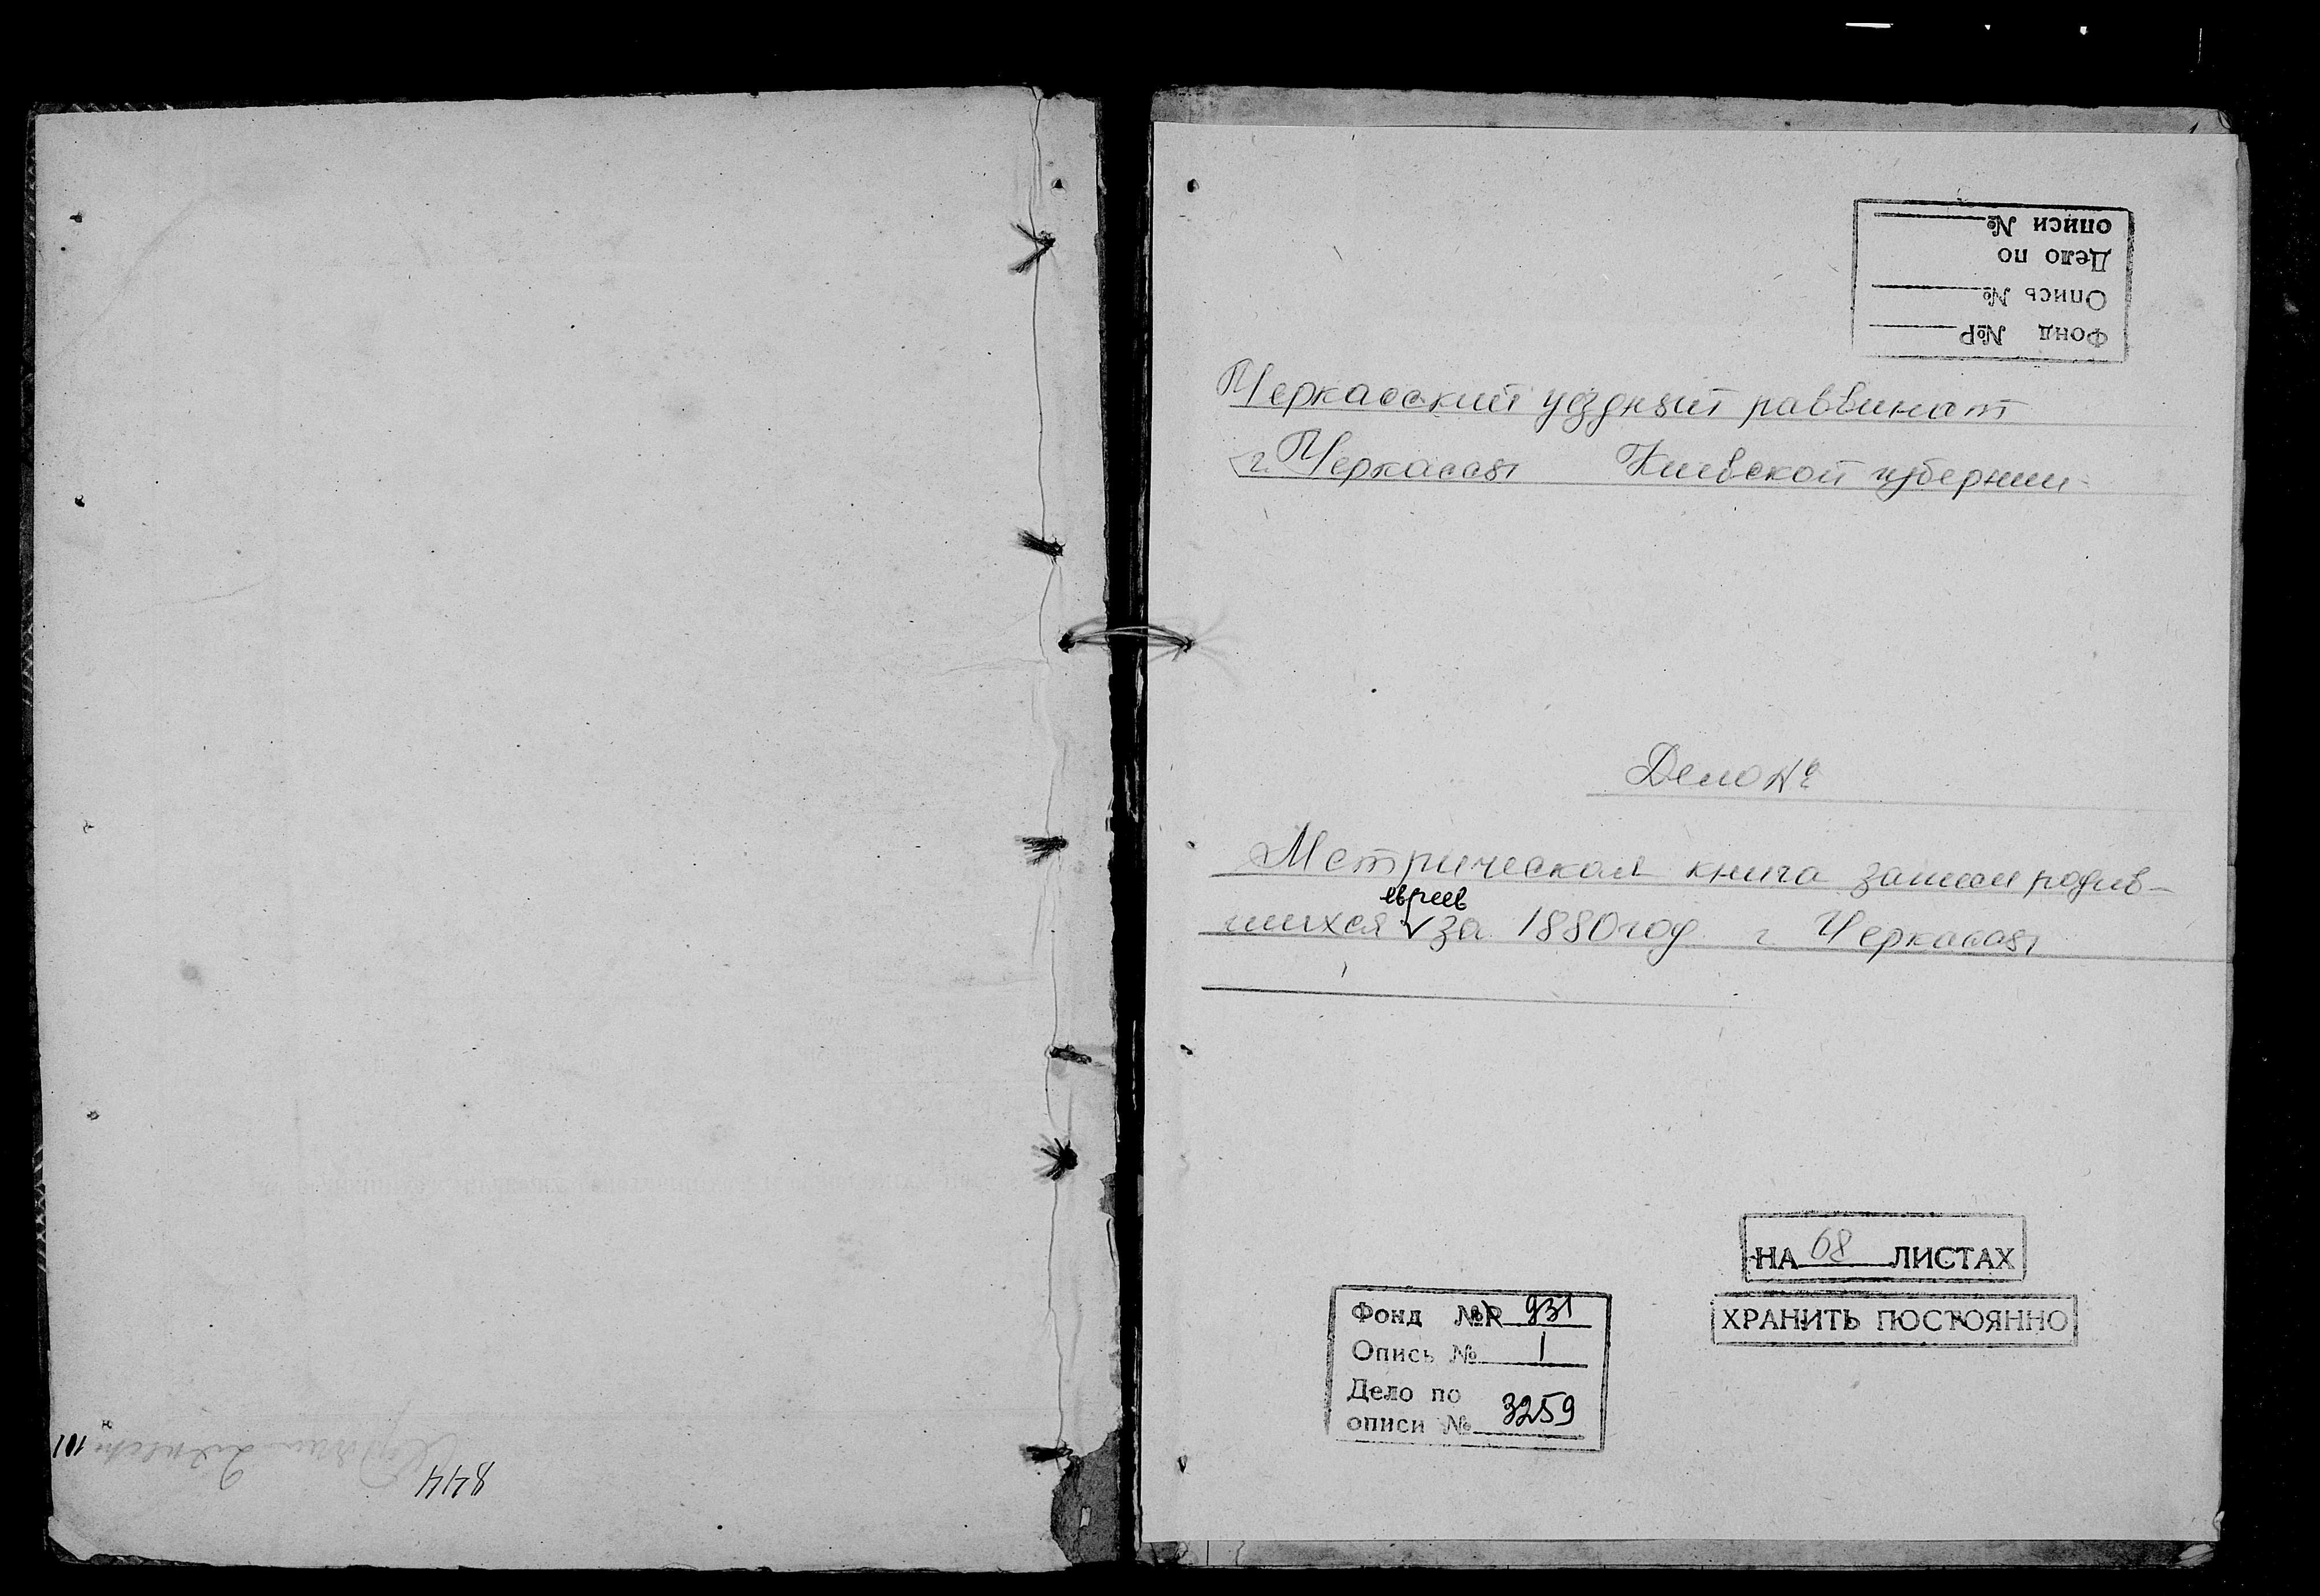 844
Фонд №Р
Опись №
Дело по
описи №
Черкасский уездный раввинат
г. Черкассы Киевской губернии
Дело №
Метрическая книга записи родив-
евреев
шихся за 1880 год г Черкассы
НА 68 ЛИСТАХ
ХРАНИТЬ ПОСТОЯННО
Фонд №Р 931
Опись № 1
Дело по
описи № 3259